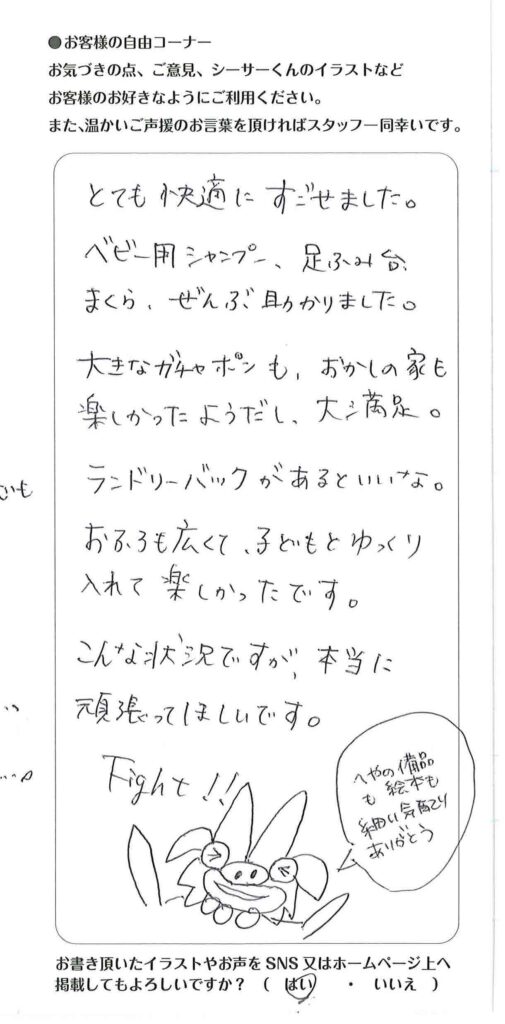 ●お客様の自由コーナー
お気づきの点、ご意見、シーサーくんのイラストなど
お客様のお好きなようにご利用ください。
また、温かいご声援のお言葉を頂ければスタッフ一同幸いです。
とても快適にすごせました。
ベビー用シャンプー、足ふみ台、
まくら、ぜんぶ助かりました。
大きなガチャポンも、おかしの家も
楽しかったようだし、大満足。
ランドリーバックがあるといいな。
おふろも広くて、子どもとゆっくり
入れて楽しかったです。
こんな状況ですが、本当に
頑張ってほしいです。
Fight!!
へやの備品
も絵本も
細い気配り
ありがとう
お書き頂いたイラストやお声をSNS又はホームページ上へ
掲載してもよろしいですか？（はい・いいえ）